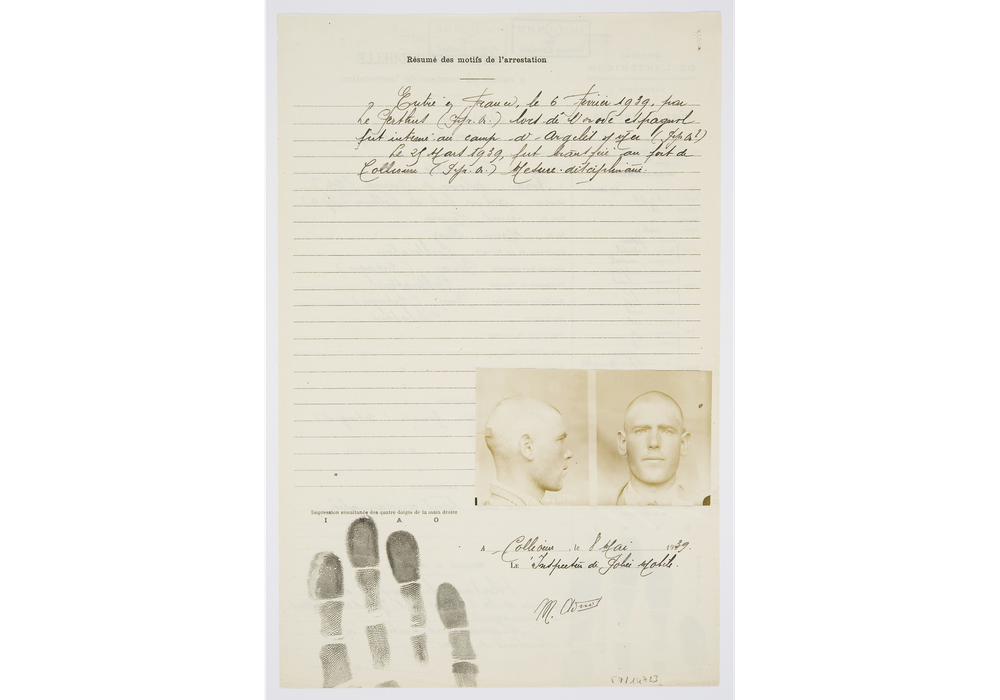 Résumé des motifs de l'arrestation
Entré en France, le 6 Février 1939, par
Le Perthus (Pyr. Or.) lors de l'exode espagnol
fut interné au camp d'Argelès s/ Mer (Pyr. Or.)
Le 25 Mars 1939, fut transféré au fort de
Collioure (Pyr. Or.) Mesure disciplinaire.
Impression simultanée des quatre doigts de la main droite
I M A O
A Collioure, le 8 Mai 1939.
Le Inspecteur de Police Mobile.
M.